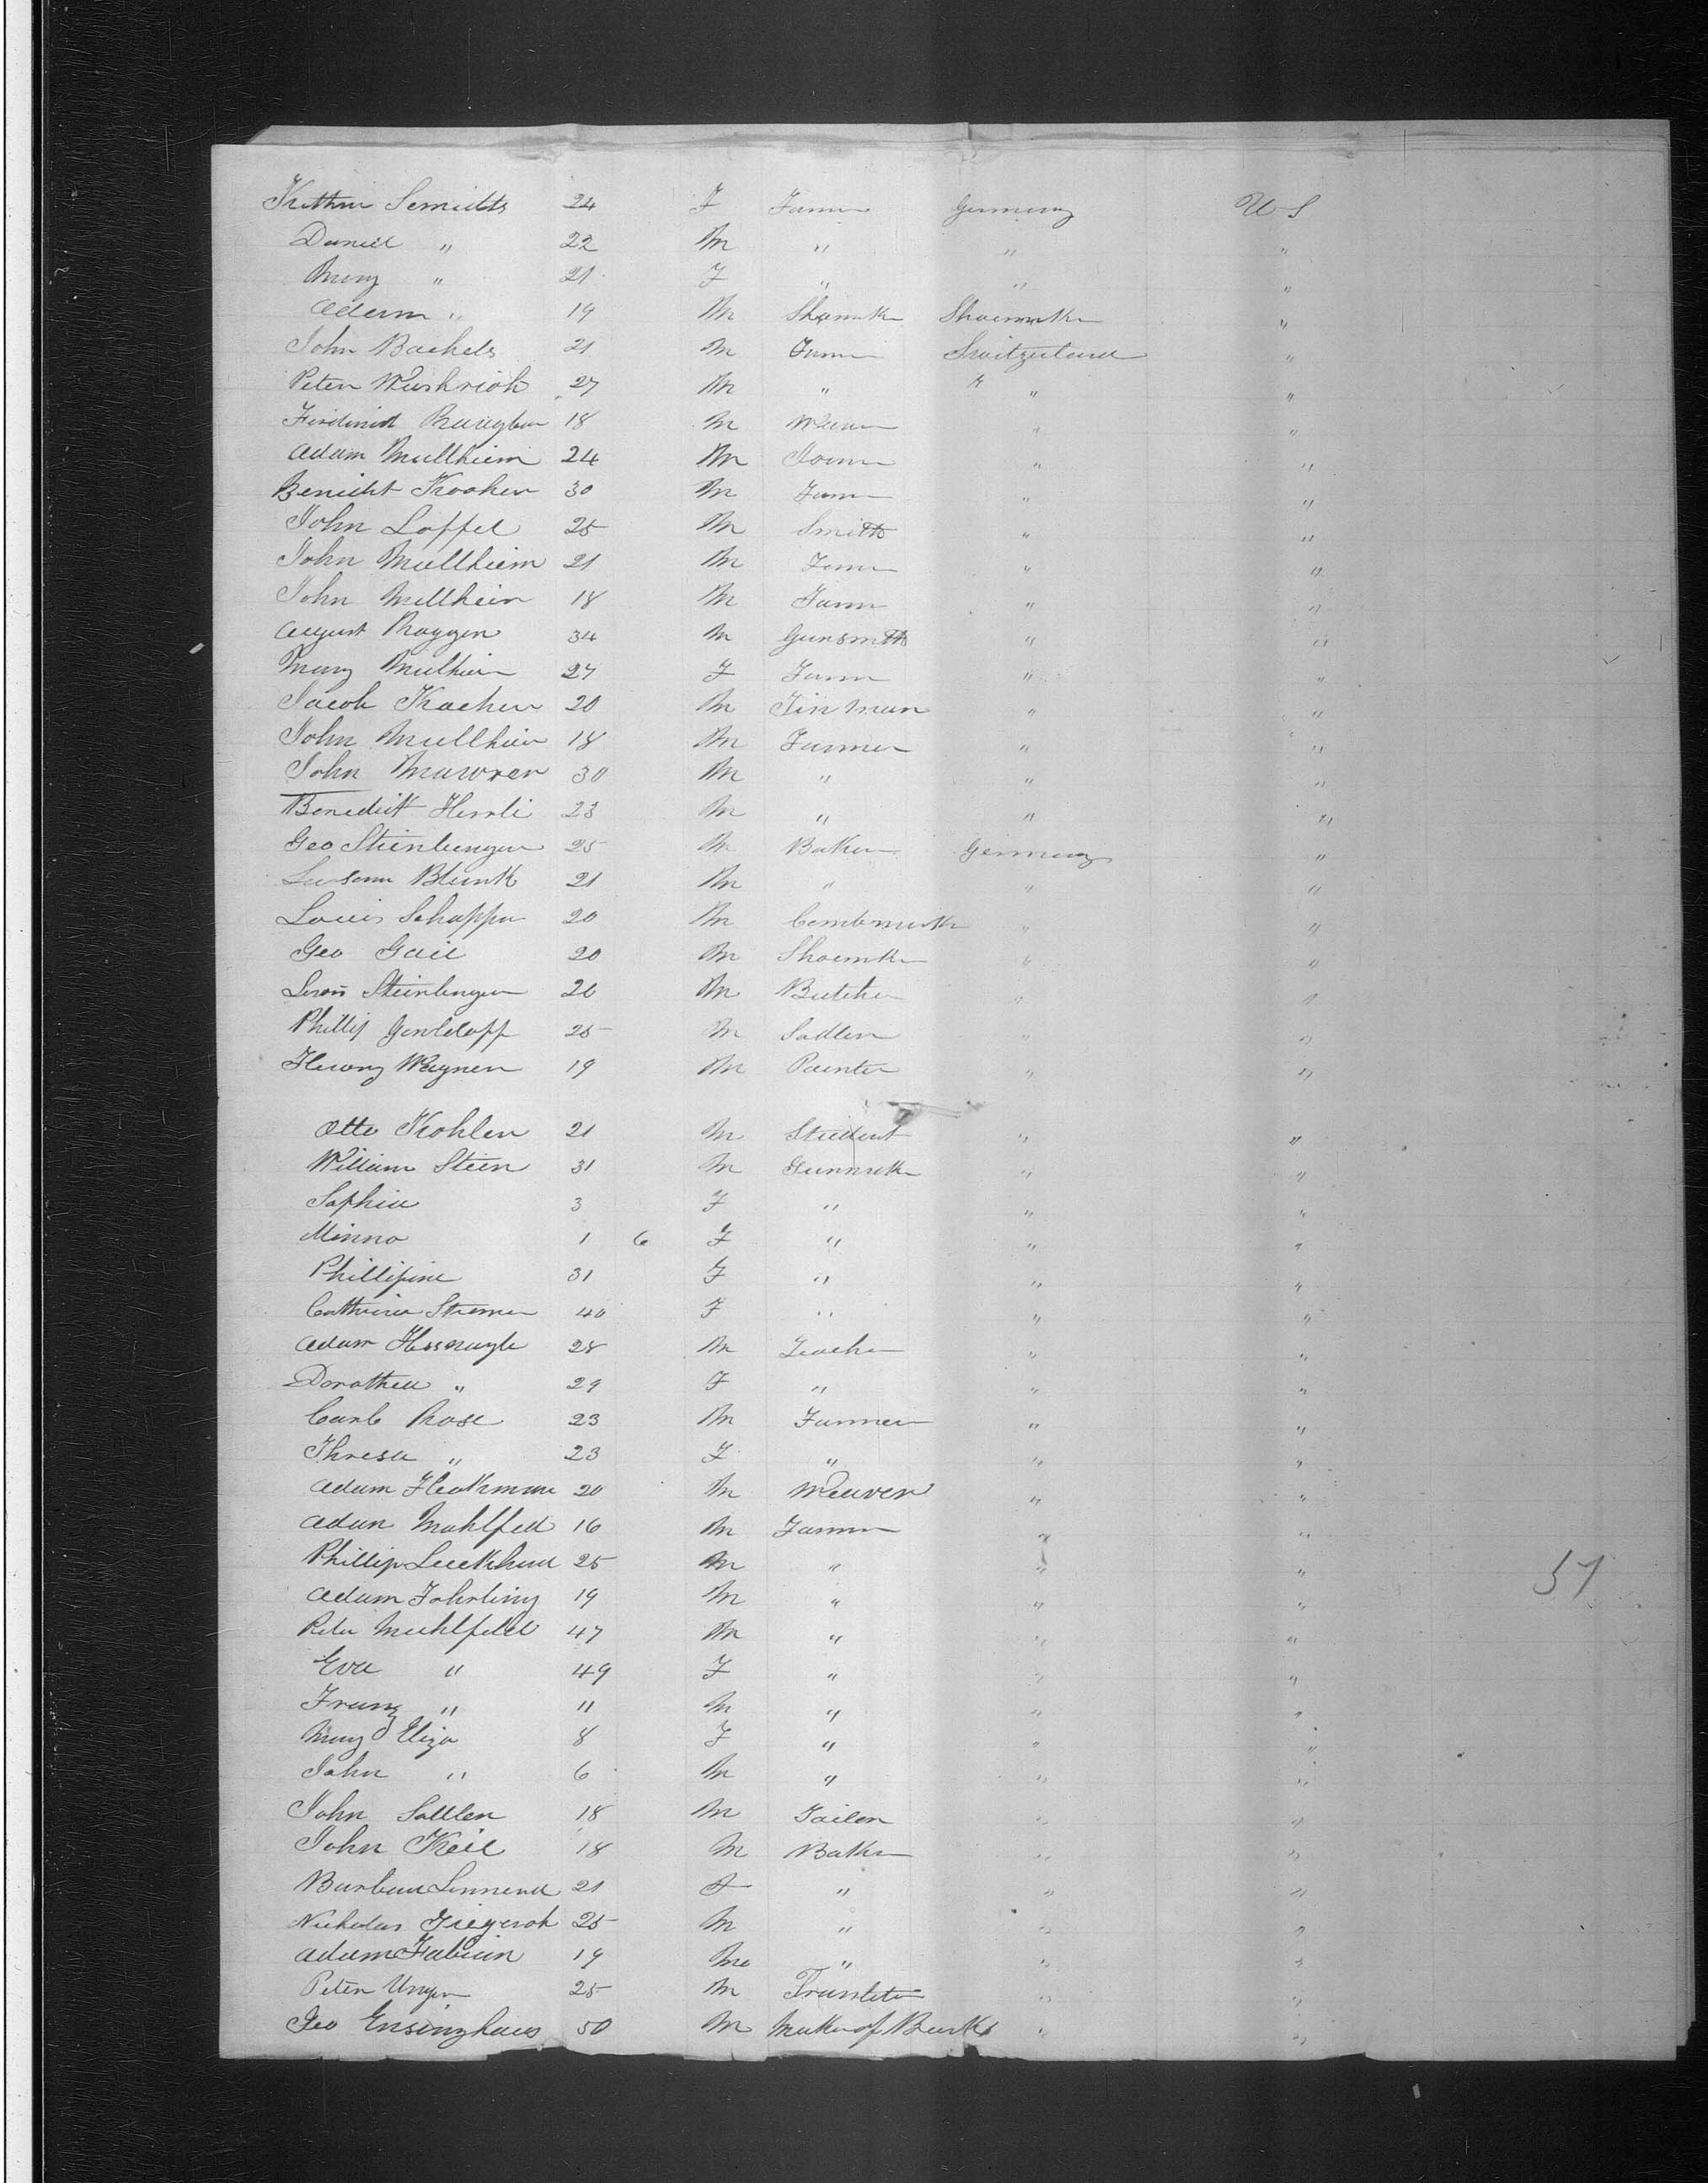 Kathrin Semidts 24 F Farmer Germany U S
Daniel " 22 M " " "
Mary " 21 F " " "
Adam " 19 M Shomk Shoemak "
John Bachels 21 M Farmer Switzerland "
Peter Washrich 27 M " " "
Ferdinid 18 M " "
Adam Mullheim 24 M " "
Benidit Kocher 30 M Farm " "
John Loffel 25 M Smith " "
John Mullheim 21 M Farm " "
John Mullheim 18 M Farm " "
August Roggen 34 M Gunsmith " "
Mary Mulheim 27 F Farm " "
Jacob Kacher 20 M Tin Man " "
John Mullheim 18 M Farmer " "
John Mawrer 30 M " " "
Benedikt Herrli 23 M " " "
Geo Steinbenger 25 M Baker Germany "
Blunk 21 M " " "
Louis Schapper 20 M Combmak " "
Geo Gail 20 M Shoemk " "
Steinbenger 26 M Butcher " "
Phillip 25 M Sadler " "
Henry Wagner 19 M Painter " "
Otto Kohler 21 M Student " "
William Stein 31 M Gunmak " "
Saphia 3 F " " "
Minna 1 6 F " " "
Phillipine 31 F " " "
Cathrina 40 F " " "
Adam Hosnagle 28 M Teacher " "
Dorothea " 29 F " " "
Carl Rose 23 M Farmer " "
Thresa " 23 F " " "
Adam Heckman 20 M Weaver " "
Adam Mahlfeld 16 M Farmer " "
Phillip Luckhard 25 M " " "
Adam Fohrling 19 M " " "
Peter Muhlfeld 47 M " " "
Eva " 49 F " " "
Franz " 11 M " " "
Mary Eliza 8 F " " "
John " 6 M " " "
John Sattler 18 M Tailor " "
John Keil 18 M Baker " "
Barbara 21 F " " "
Nicholas 25 M " " "
Adam Fabian 19 M " " "
Peter Unger 25 M " "
Geo Ensinghaus 50 M Maker of " "
57